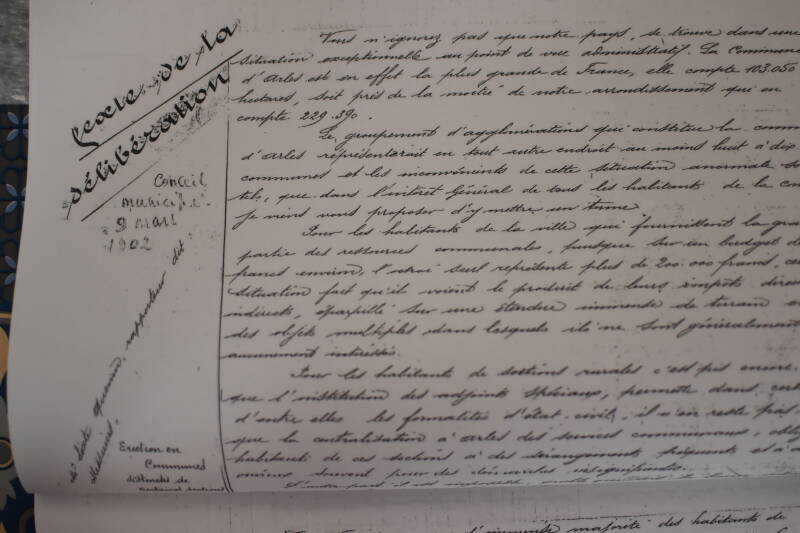 Texte de la
délibération
Conseil
municipal
9 mars
1902
rapporteur dit :
Messieurs,
Erection en
Communes
distinctes de
Vous n'ignorez pas que notre pays, se trouve dans une
situation exceptionnelle au point de vue administratif. La Commune
d'Arles est en effet la plus grande de France, elle compte 103.050
hectares, soit près de la moitié de notre arrondissement qui en
compte 229.390.
Le groupement d'agglomérations qui constitue la comm
d'Arles représenterait en tout autre endroit au moins huit à dix
communes et les inconvénients de cette situation anormale so
tels, que dans l'intérêt Général de tous les habitants de la co
je viens vous proposer d'y mettre un terme
Pour les habitants de la ville qui fournissent la gra
partie des ressources communales, puisque sur un budget d
francs environ, l'octroi seul représente plus de 200.000 francs, ce
situation fait qu'ils voient le produit de leurs impôts dire
indirects, éparpillé sur une étendue immense de terrain e
des objets multiples dans lesquels ils ne sont généralement
aucunement intéressés.
Pour les habitants de sections rurales c'est pis encore.
que l'institution des adjoints spéciaux, permette dans cert
d'entre elles les formalités d'état-civil, il n'en reste pas
que la centralisation à Arles des services communaux, obl
habitants de ces sections à des dérangements fréquents et à
souvent pour des démarches insignifiantes.
D'autre part il est
immense majorité des habitants de